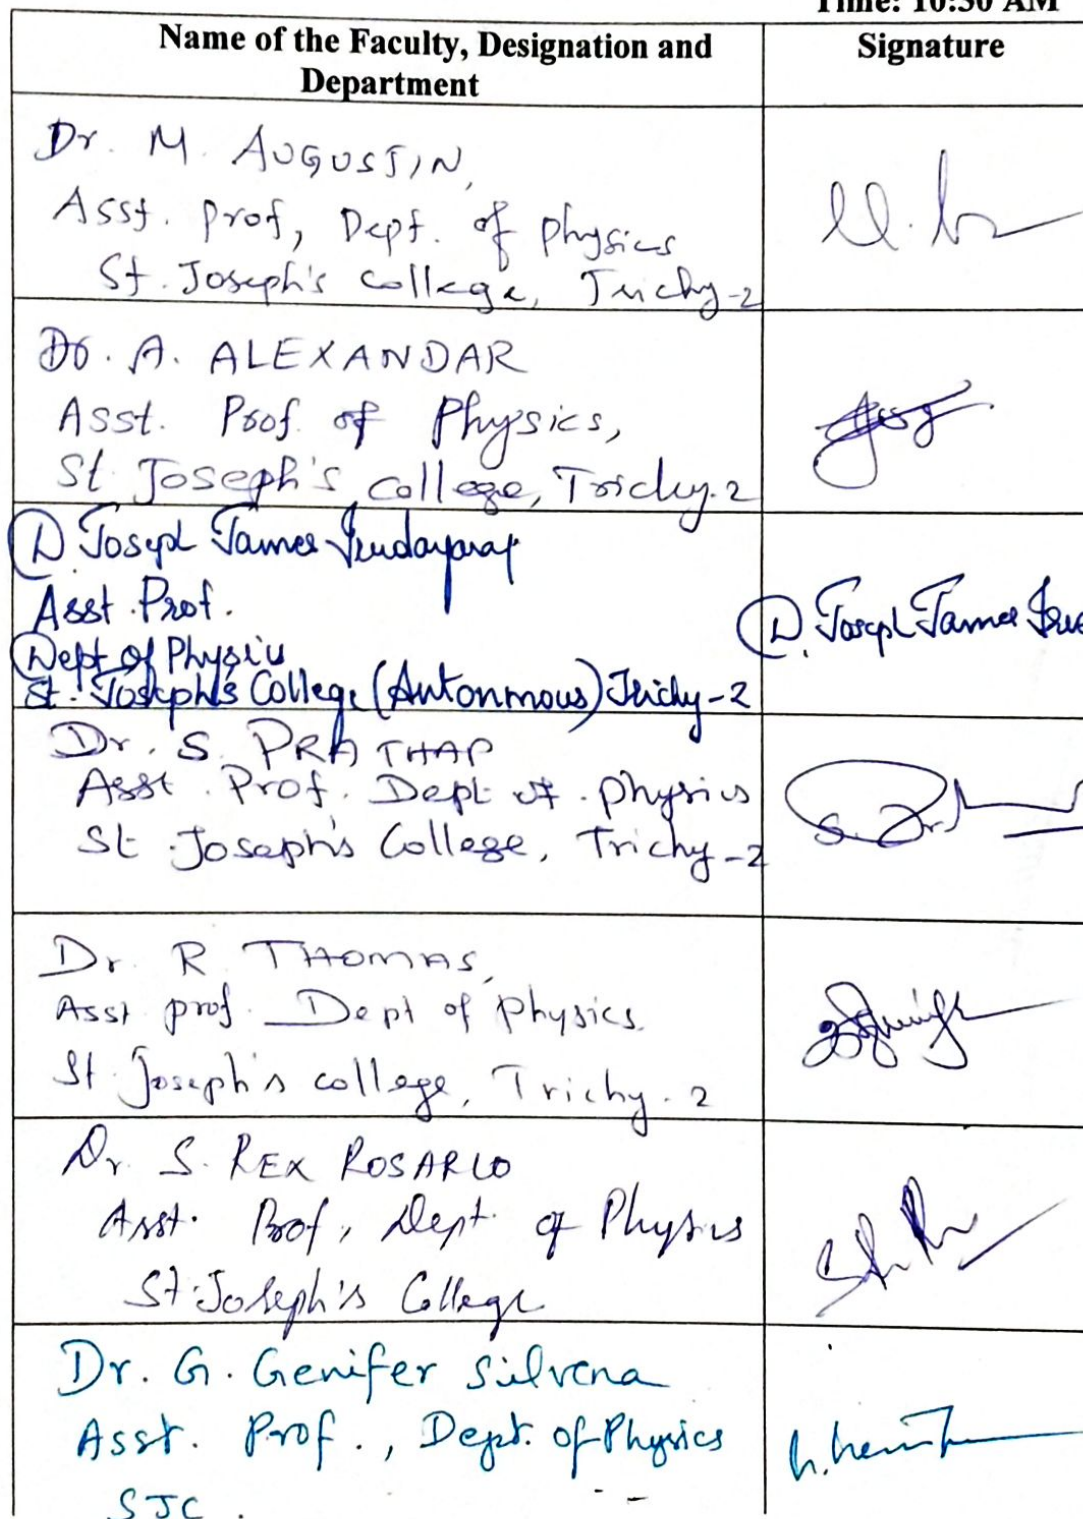 Time: 10:30 AM
Name of the Faculty, Designation and
Department
Signature
Dr. M. AUGUSTIN,
Asst. prof, Dept. of physics
St. Joseph's college, Trichy-2
Dr. A. ALEXANDAR
Asst. Prof. of Physics,
St. Joseph's college, Trichy-2
D. Joseph James Irudayaraj
Asst. Prof.
Dept of Physics
St. Joseph's College (Autonmous) Trichy-2
D. Joseph James
Dr. S. PRATHAP
Asst. Prof. Dept of. physics
St. Joseph's College, Trichy-2
Dr. R. THOMAS,
Asst prof. Dept of physics.
St. Joseph's college, Trichy-2
Dr. S. REX ROSARIO
Asst. Prof, Dept. of Physics
St. Joseph's College
Dr. G. Genifer Silvena
Asst. Prof., Dept. of Physics
SJC.